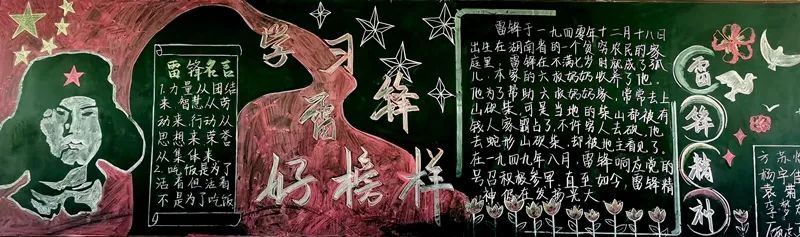 雷锋名言
1.力量从团结
来智慧从劳
动来行动从
思想来荣誉
从集体来
2.吃饭是为了
活着但活着
不是为了吃饭
学习雷锋
好榜样
雷锋于一九四零年十二月十八日
出生在湖南省的一个贫穷农民的家
庭里,雷锋在不满七岁时就成了孤
儿,本家的六叔奶奶收养了他。
他为了帮助六叔奶奶家,常常去上
山砍柴,可是当地的柴山都被有
钱人家霸占了,不许穷人去砍,他
去蛇形山砍柴,却被地主看见了。
在一九四九年八月,雷锋响应党的
号召积极参军,直至如今,雷锋精
神仍在发扬光大
雷锋精神